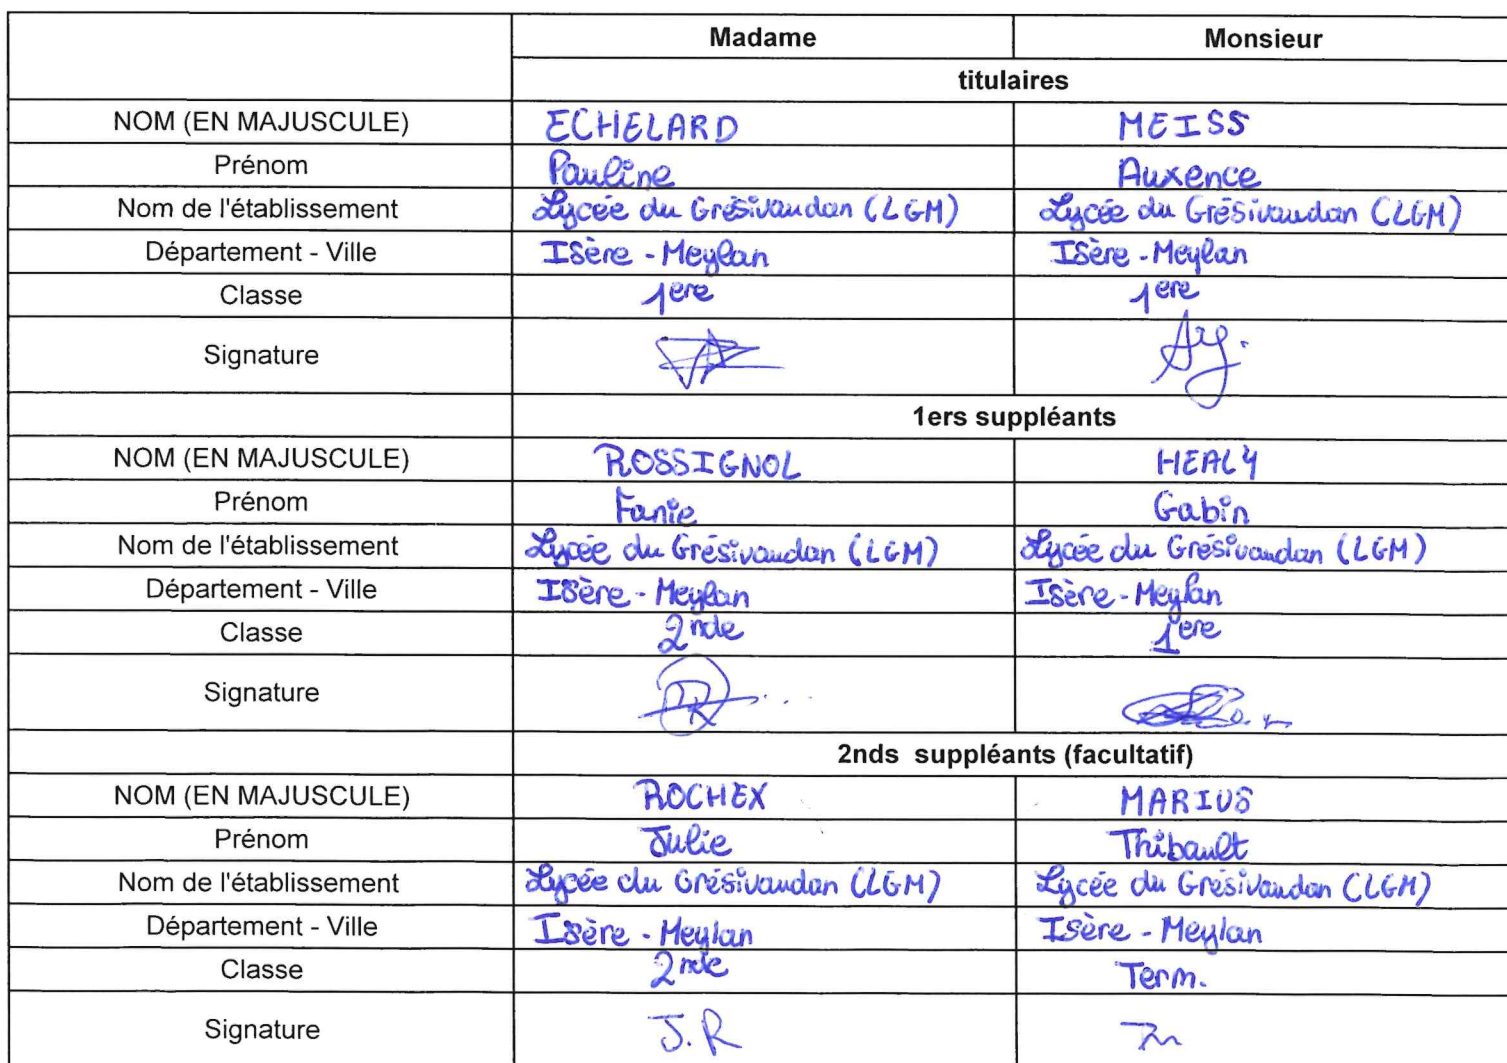 Madame Monsieur
titulaires
NOM (EN MAJUSCULE) ECHELARD MEISS
Prénom Pauline Auxence
Nom de l'établissement Lycée du Grésivaudan (LGM) Lycée du Grésivaudan (LGM)
Département - Ville Isère - Meylan Isère - Meylan
Classe 1ere 1ere
Signature
1ers suppléants
NOM (EN MAJUSCULE) ROSSIGNOL HEALY
Prénom Fanie Gabin
Nom de l'établissement Lycée du Grésivaudan (LGM) Lycée du Grésivaudan (LGM)
Département - Ville Isère - Meylan Isère - Meylan
Classe 2nde 1ere
Signature
2nds suppléants (facultatif)
NOM (EN MAJUSCULE) ROCHEX MARIUS
Prénom Julie Thibault
Nom de l'établissement Lycée du Grésivaudan (LGM) Lycée du Grésivaudan (LGM)
Département - Ville Isère - Meylan Isère - Meylan
Classe 2nde Term.
Signature J.R